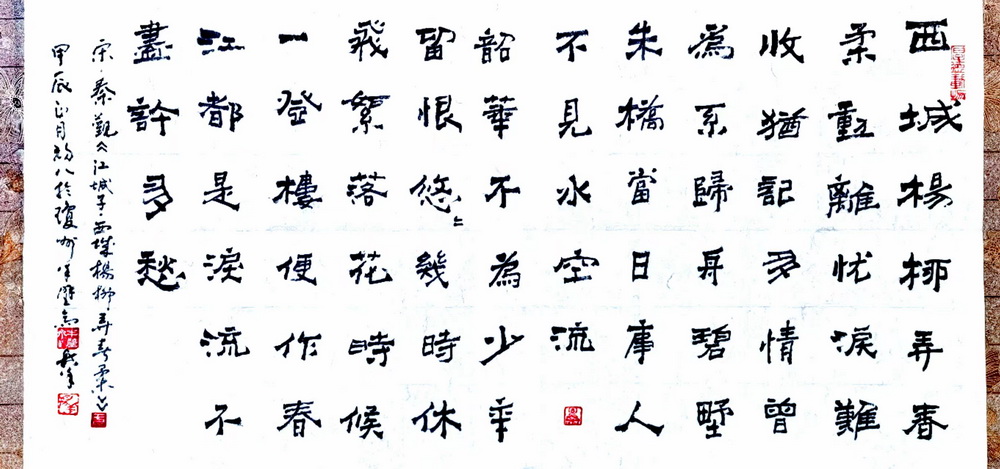 西城楊柳弄春
柔動離忧淚難
收猶記多情曾
爲系歸舟碧野
朱橋當日事人
不見水空流
韶華不為少年
留恨悠〻幾時休
飛絮落花時候
一登樓便作春
江都是淚流不
盡許多愁
宋·秦觀《江城子·西城楊柳弄春柔》
甲辰正月初八於瓊州